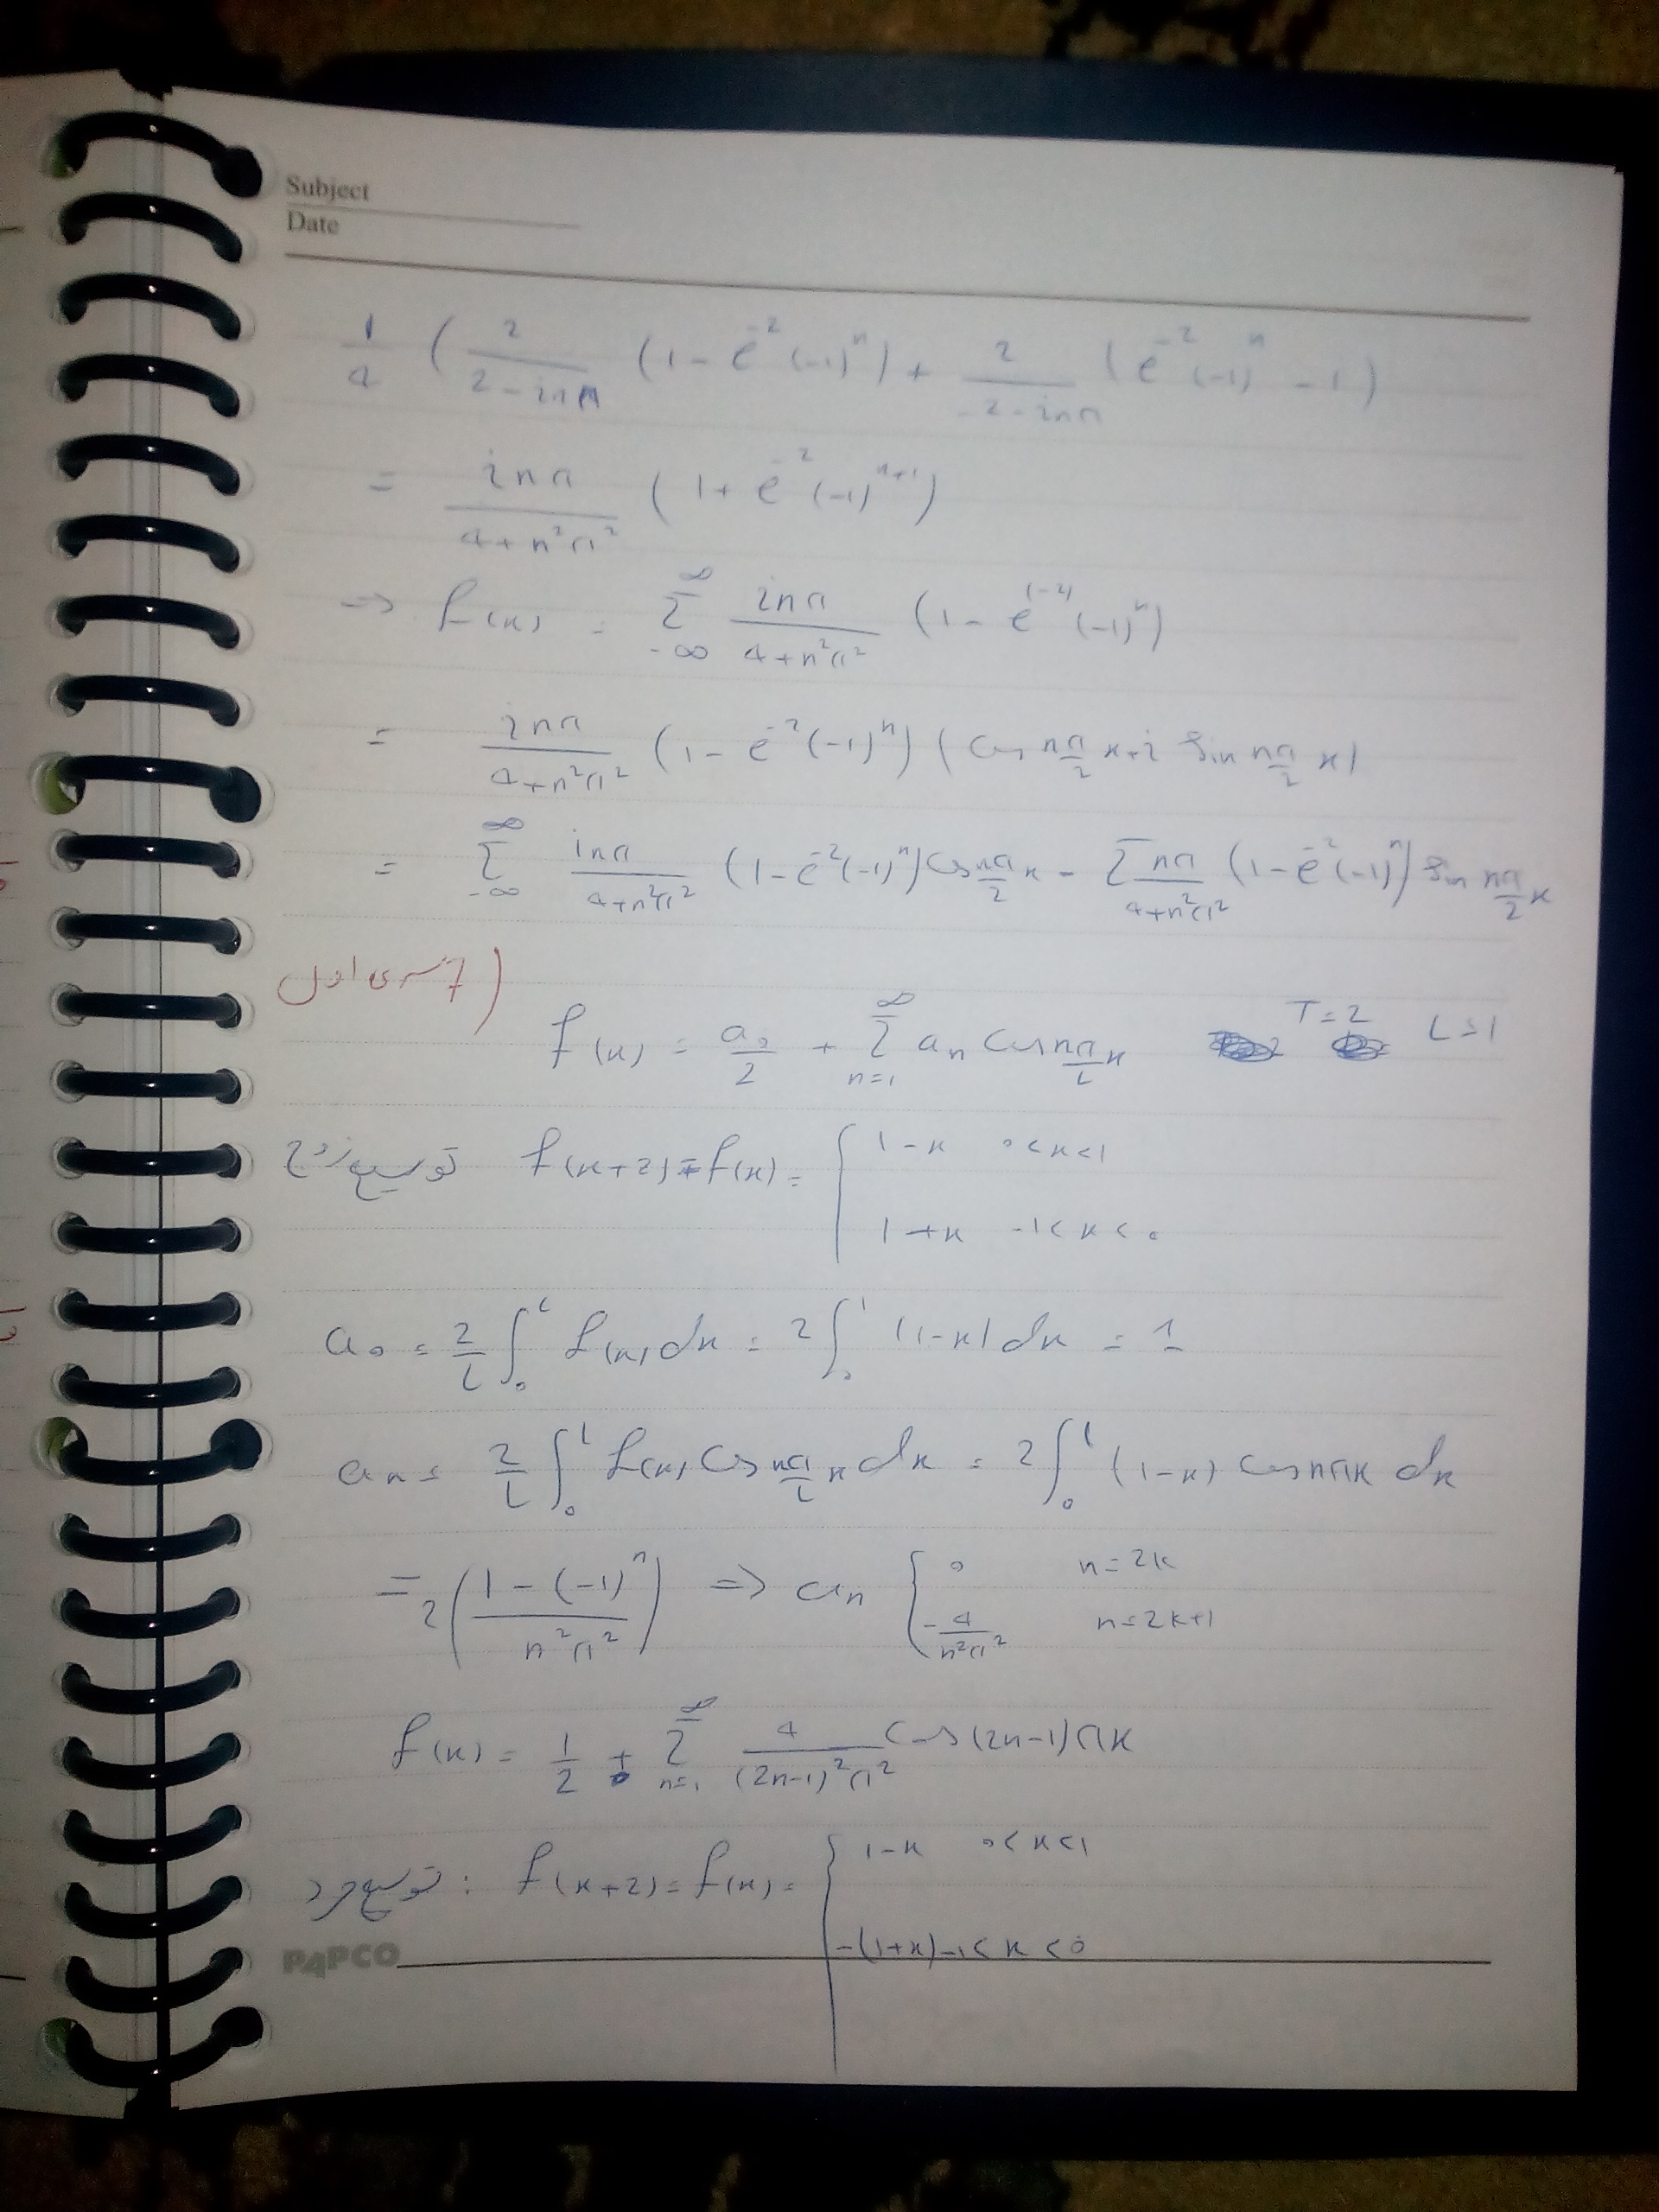 Subject
Date
1/4 ( 2/(2-inπ) (1-e^-2 (-1)^n) + 2/(-2-inπ) (e^-2 (-1)^n -1)
= inπ/(4+n²π²) (1+e^-2 (-1)^n+1)
=> f(x) = Σ_-∞^∞ inπ/(4+n²π²) (1-e^(-2) (-1)^n)
= inπ/(4+n²π²) (1-e^-2 (-1)^n) (Cos nπ/2 x + i Sin nπ/2 x)
= Σ_-∞^∞ inπ/(4+n²π²) (1-e^-2 (-1)^n) Cos nπ/2 x - Σ nπ/(4+n²π²) (1-e^-2 (-1)^n) Sin nπ/2 x
7 سری اول)
f(x) = a₀/2 + Σ_n=1^∞ an Cos nπ/L x T=2 L=1
توسیع زوج f(x+2)=f(x)= { 1-x 0<x<1
1+x -1<x<0
a₀ = 2/L ∫₀^L f(x) dx = 2∫₀^1 (1-x) dx = 1
an = 2/L ∫₀^L f(x) Cos nπ/L x dx = 2∫₀^1 (1-x) Cos nπx dx
= 2( (1-(-1)^n)/(n²π²) ) => an { 0 n=2k
-4/(n²π²) n=2k+1
f(x) = 1/2 + Σ_n=1^∞ 4/((2n-1)²π²) Cos(2n-1)πx
توسیع فرد : f(x+2)=f(x)= { 1-x 0<x<1
-(1+x) -1<x<0
PAPCO